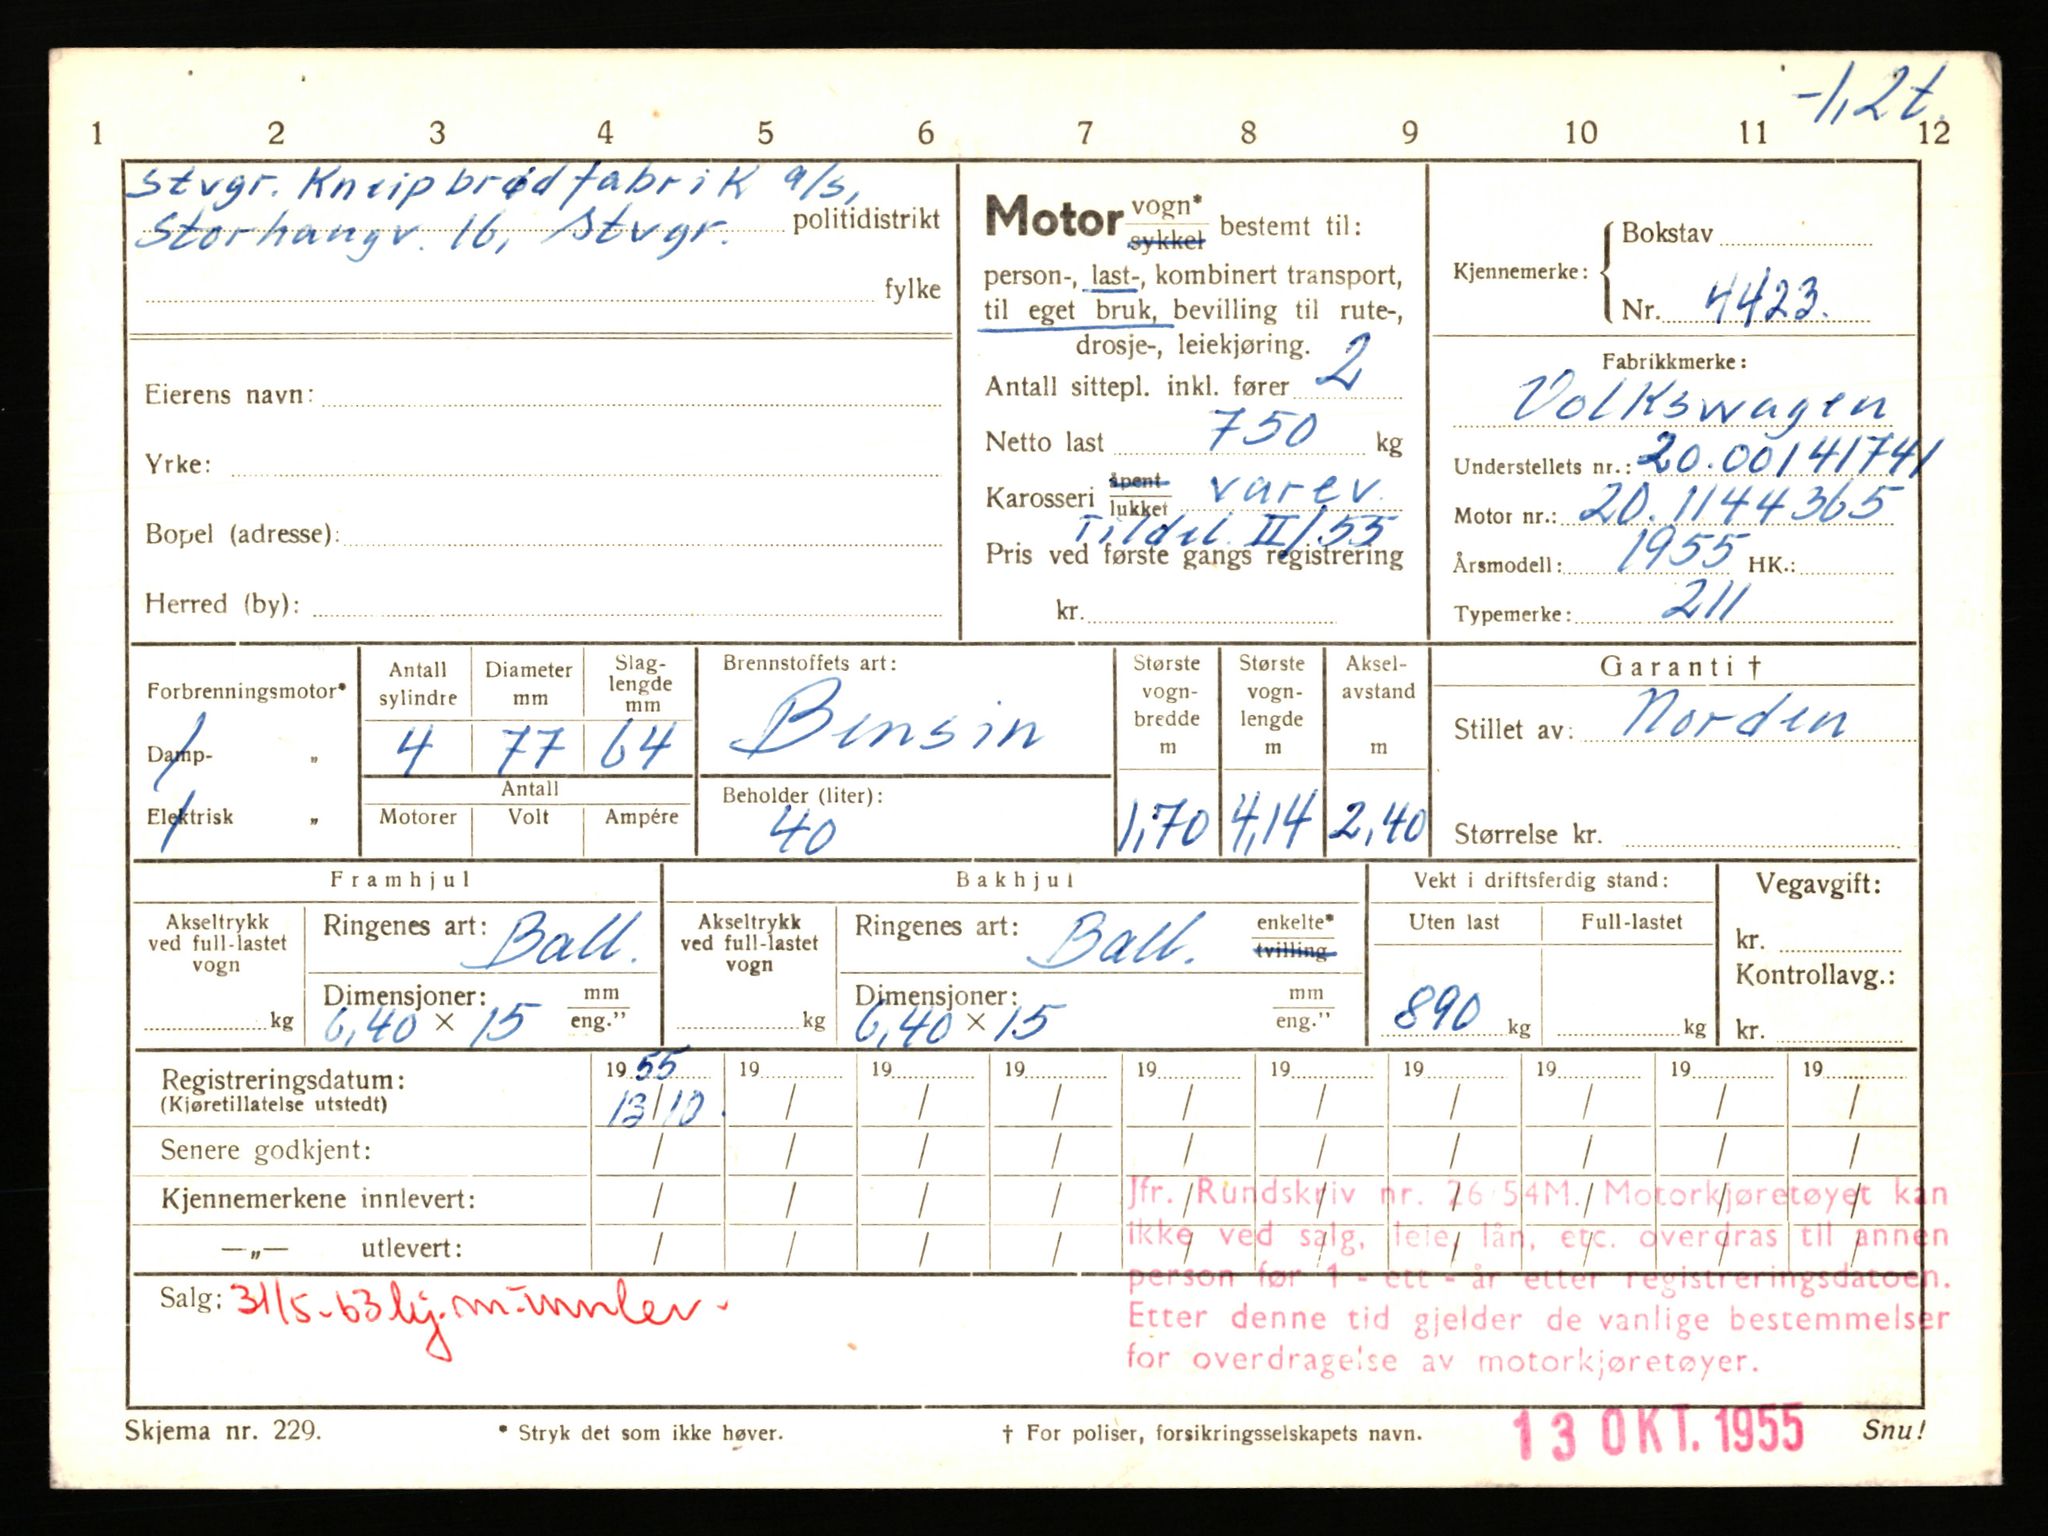 -1,2t.
1 2 3 4 5 6 7 8 9 10 11 12
Stvgr. Kneipbrødfabrik a/s,
Storhaugv. 16, Stvgr. politidistrikt
fylke
Eierens navn:
Yrke:
Bopel (adresse):
Herred (by):
Motor vogn* sykkel bestemt til:
person-, last-, kombinert transport,
til eget bruk, bevilling til rute-,
drosje-, leiekjøring.
Antall sittepl. inkl. fører 2
Netto last 750 kg
Karosseri åpent lukket varev.
Tildel. II/55
Pris ved første gangs registrering
kr.
Kjennemerke: Bokstav
Nr. 4423.
Fabrikkmerke:
Volkswagen
Understellets nr.: 20.00141741
Motor nr.: 20.1144365
Årsmodell: 1955 HK.:
Typemerke: 211
Forbrenningsmotor*
Damp- „
Elektrisk „
Antall sylindre 4
Diameter mm 77
Slag-lengde mm 64
Antall
Motorer Volt Ampére
Brennstoffets art:
Bensin
Beholder (liter):
40
Største vogn-bredde m 1,70
Største vogn-lengde m 4,14
Aksel-avstand m 2,40
Garanti †
Stillet av: Norden
Størrelse kr.
Framhjul
Akseltrykk ved full-lastet vogn
kg
Ringenes art: Ball.
Dimensjoner: mm eng."
6,40 × 15
Bakhjul
Akseltrykk ved full-lastet vogn
kg
Ringenes art: Ball. enkelte* tvilling
Dimensjoner: mm eng."
6,40 × 15
Vekt i driftsferdig stand:
Uten last Full-lastet
890 kg kg
Vegavgift:
kr.
Kontrollavg.:
kr.
Registreringsdatum: 1955 19 19 19 19 19 19 19 19 19
(Kjøretillatelse utstedt) 13/10. / / / / / / / / /
Senere godkjent: / / / / / / / / / /
Kjennemerkene innlevert: / / / / / / / / / /
—„— utlevert: / / / / / / / / / /
Salg: 31/5-63 kj.m. innlev.
Jfr. Rundskriv nr. 26 54M. Motorkjøretøyet kan
ikke ved salg, leie, lån, etc. overdras til annen
person før 1 - ett - år etter registreringsdatoen.
Etter denne tid gjelder de vanlige bestemmelser
for overdragelse av motorkjøretøyer.
Skjema nr. 229. * Stryk det som ikke høver. † For poliser, forsikringsselskapets navn. 13 OKT. 1955 Snu!